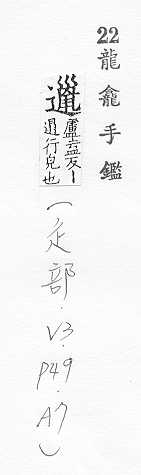 22龍龕手鑑
邋
盧盍反丨
𨘇行皃也
(辵部.V3.P49.A7)